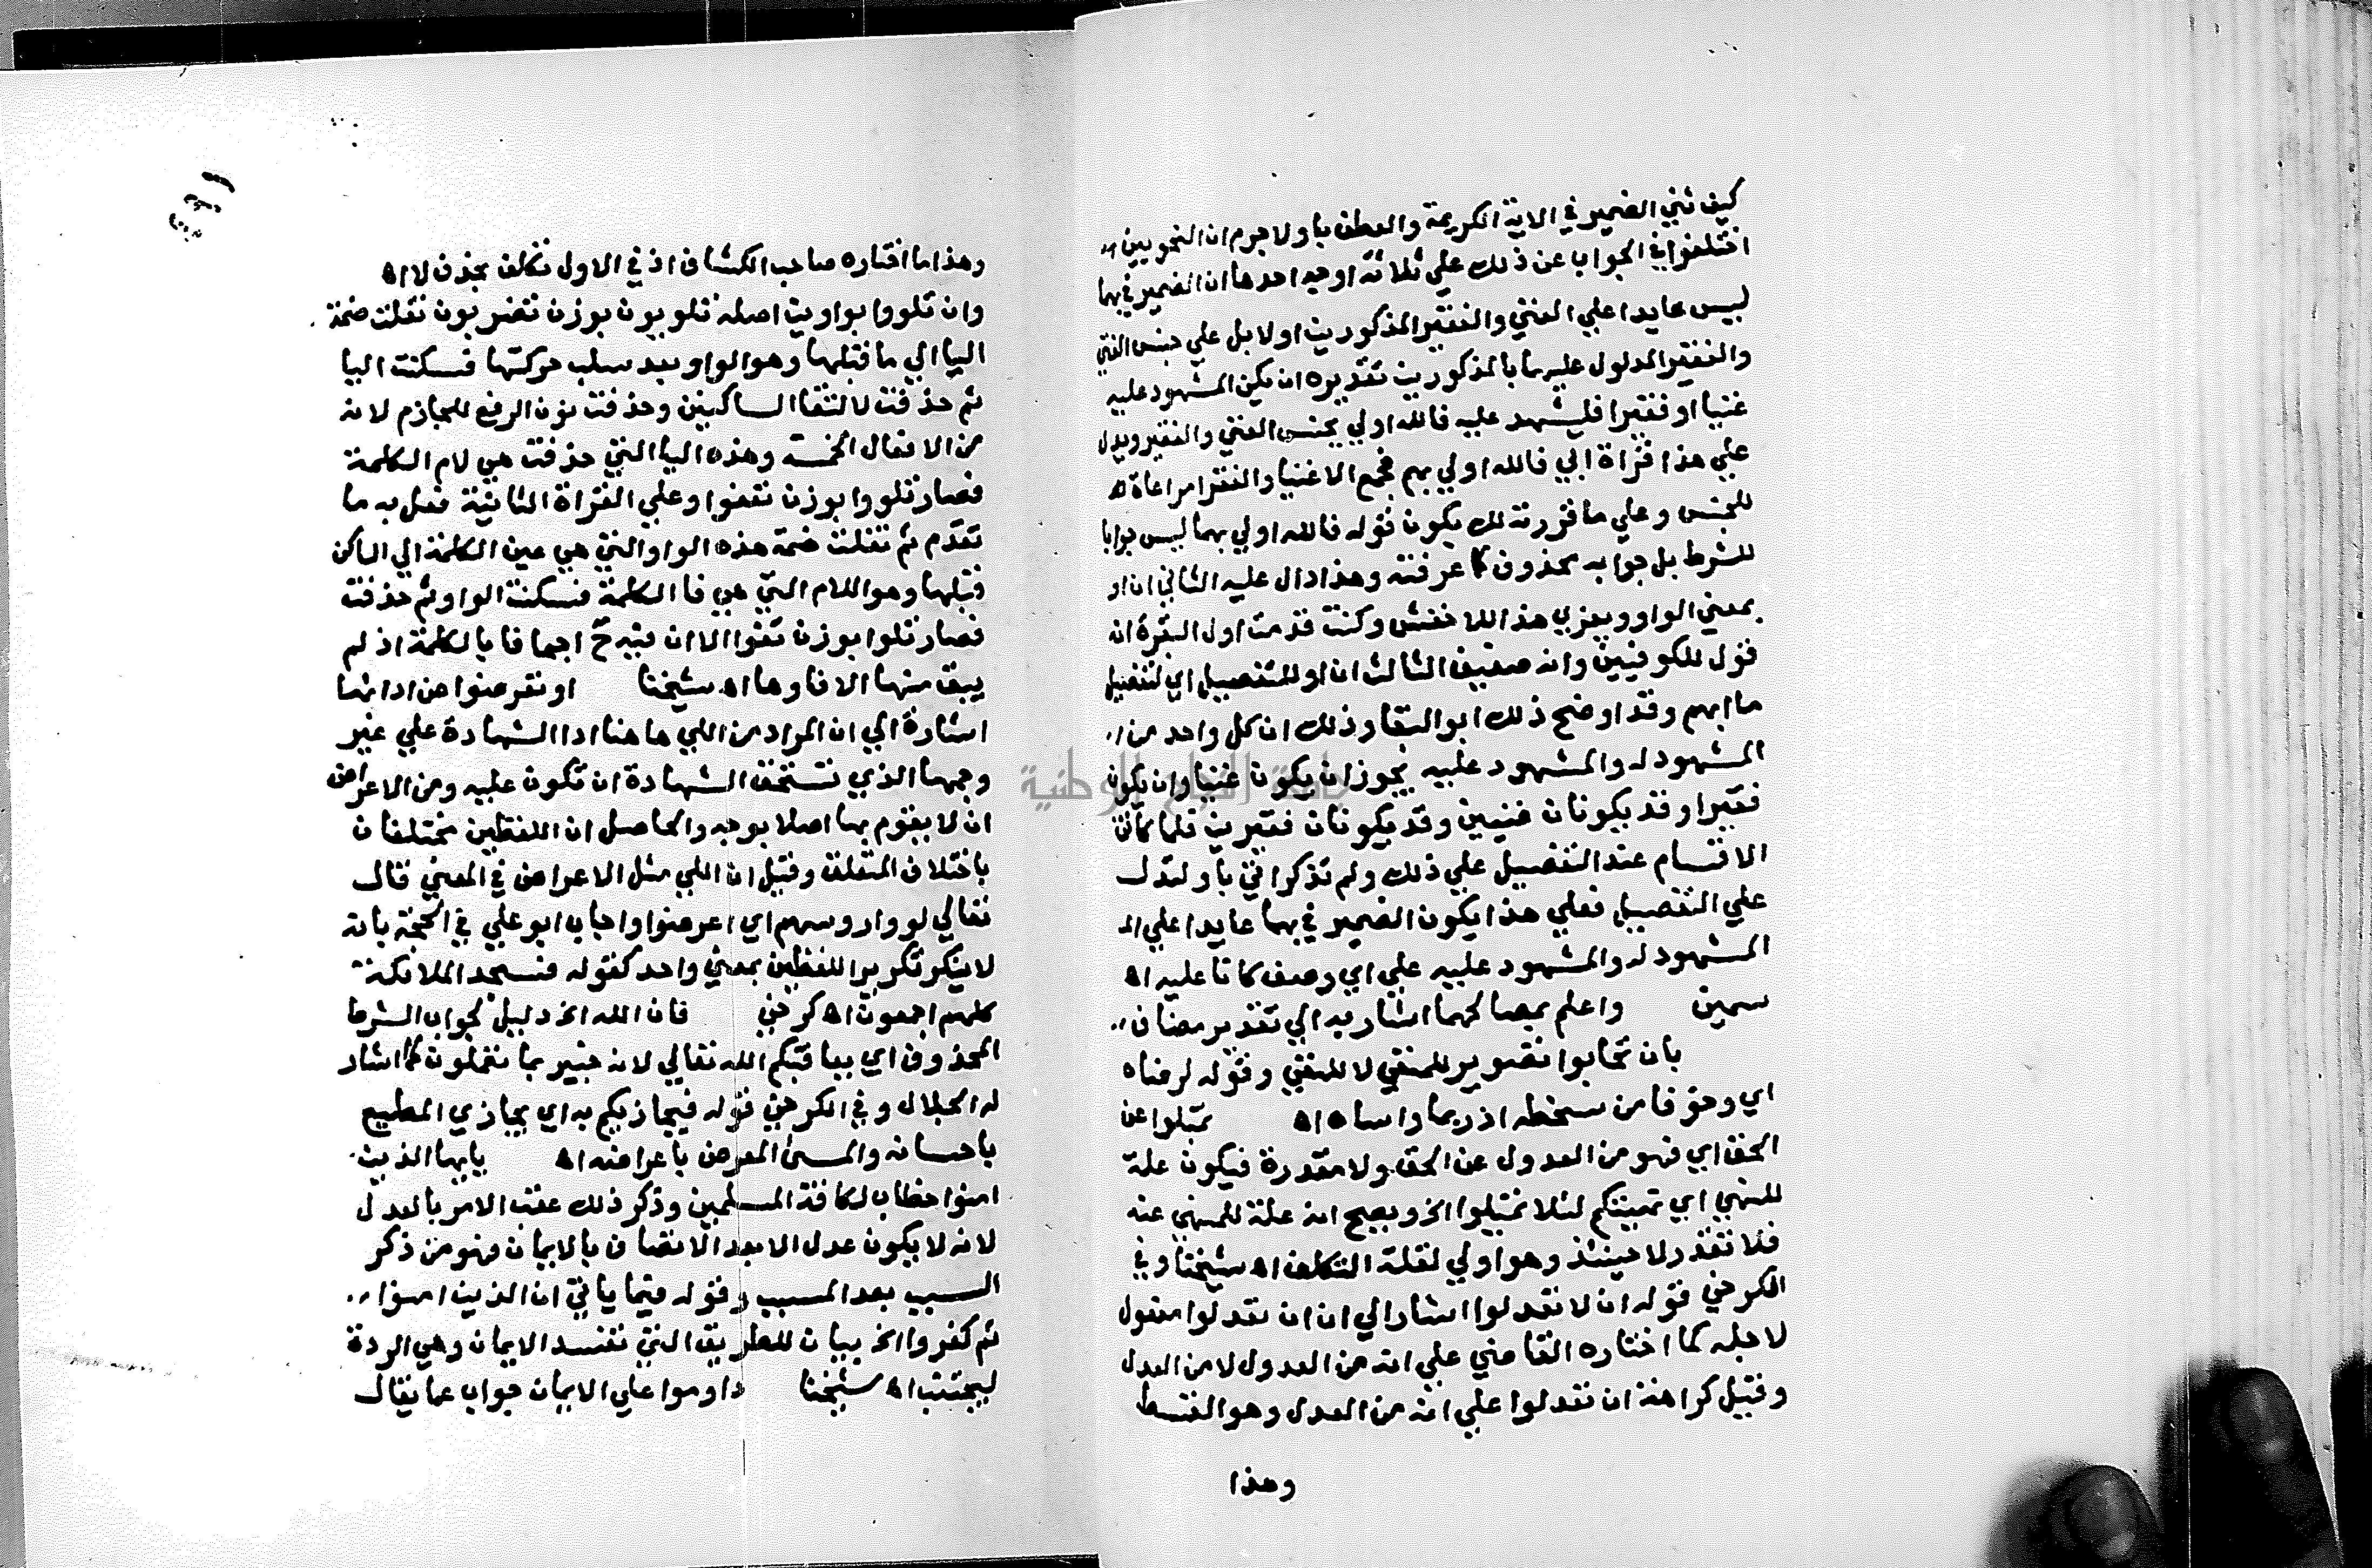 كيف ثني الضمير في الاية الكريمة والعطف باو ولا جرم ان النحويين
اختلفوا في الجواب عن ذلك علي ثلاثة اوجه احدها ان الضمير في بهما
ليس عايدا علي الغني والفقير المذكورين اولا بل علي جنس الغني
والفقير المدلول عليهما بالمذكورين تقديره ان يكن المشهود عليه
غنيا او فقيرا فليشهد عليه فالله اولي بجنس الغني والفقير ويدل
علي هذا قراة ابي فالله اولي بهم فجمع الاغنيا والفقرا مراعاة
للجنس وعلي ما قررته لك يكون قوله فالله اولي بهما ليس جوابا
للشرط بل جوابه محذوف كما عرفته وهذا دال عليه الثاني ان او
بمعني الواو ويعزي هذا للاخفش وكنت قدمت اول البقرة انه
قول للكوفيين وانه ضعيف الثالث ان او للتفصيل اي لتفصيل
ما ابهم وقد اوضح ذلك ابو البقا وذلك ان كل واحد من
المشهود له والمشهود عليه يجوز ان يكون غنيا وان يكون
فقيرا وقد يكونان غنيين وقد يكونان فقيرين فلما كانت
الاقسام عند التفصيل علي ذلك ولم تذكر اتي باو لتدل
علي التفصيل فعلي هذا يكون الضمير في بهما عايدا علي الم
المشهود له والمشهود عليه علي اي وصف كانا عليه اه
سمين واعلم بمصالحهما اشار به الي تقدير مضاف
بان تحابوا تصوير للمنفي لا للنفي وقوله لرضاه
اي وخوفا من سخطه اذ ربما واساه اه تميلوا عن
الحق اي فهو من العدول عن الحق ولا مقدرة فيكون علة
للنهي اي نهيتكم لئلا تميلوا الخ ويصح انه علة للمنهي عنه
فلا تقدر لا حينئذ وهو اولي لقلة التكلف اه شيخنا وفي
الكرخي قوله ان لا تعدلوا اشار الي ان ان تعدلوا مفعول
لاجله كما اختاره القاضي علي انه من العدول لا من العدل
وقيل كراهة ان تعدلوا علي انه من العدل وهو القسط
وهذا
وهذا ما اختاره صاحب الكشاف اذ في الاول تكلف بحذف لا اه
وان تلووا بواوين اصله تلويون بوزن تضربون نقلت ضمة
اليا الي ما قبلها وهو الواو بعد سلب حركتها فسكنت اليا
ثم حذفت لالتقا الساكنين وحذفت نون الرفع للجازم لانه
من الافعال الخمسة وهذه اليا التي حذفت هي لام الكلمة
فصار تلووا بوزن تفعوا وعلي القراة الثانية فعل به ما
تقدم ثم نقلت ضمة هذه الواو التي هي عين الكلمة الي الساكن
قبلها وهو اللام التي هي فا الكلمة فسكنت الواو ثم حذفت
فصار تلوا بوزن تفوا الا ان فيه ح اجحافا بالكلمة اذ لم
يبق منها الا فاوها اه شيخنا او تعرضوا عن ادائها
اشارة الي ان المراد من اللي ها هنا ادا الشهادة علي غير
وجهها الذي تستحق الشهادة ان تكون عليه ومن الاعراض
ان لا يقوم بها اصلا بوجه والحاصل ان اللفظين مختلفان
باختلاف المتعلق وقيل ان اللي مثل الاعراض في المعني قال
تعالي لووا روسهم اي اعرضوا واجاب ابو علي في الحجة بانه
لا ينكر تكرير اللفظين بمعني واحد كقوله فسجد الملائكة
كلهم اجمعون اه كرخي فان الله الخ دليل لجواب الشرط
المحذوف اي يعاقبكم الله تعالي لانه خبير بما تعملون كما اشار
له الجلال وفي الكرخي قوله فيجازيكم به اي يجازي المطيع
باحسانه والمسئ المعرض باعراضه اه يايها الذين
امنوا خطاب لكافة المسلمين وذكر ذلك عقب الامر بالعدل
لانه لا يكون عدل الا بعد الاتصاف بالايمان فهو من ذكر
السبب بعد المسبب وقوله فيما ياتي ان الذين امنوا
ثم كفروا الخ بيان للطريق التي تفسد الايمان وهي الردة
ليجتنب اه شيخنا داوموا علي الايمان جواب عما يقال
جامعة النجاح الوطنية